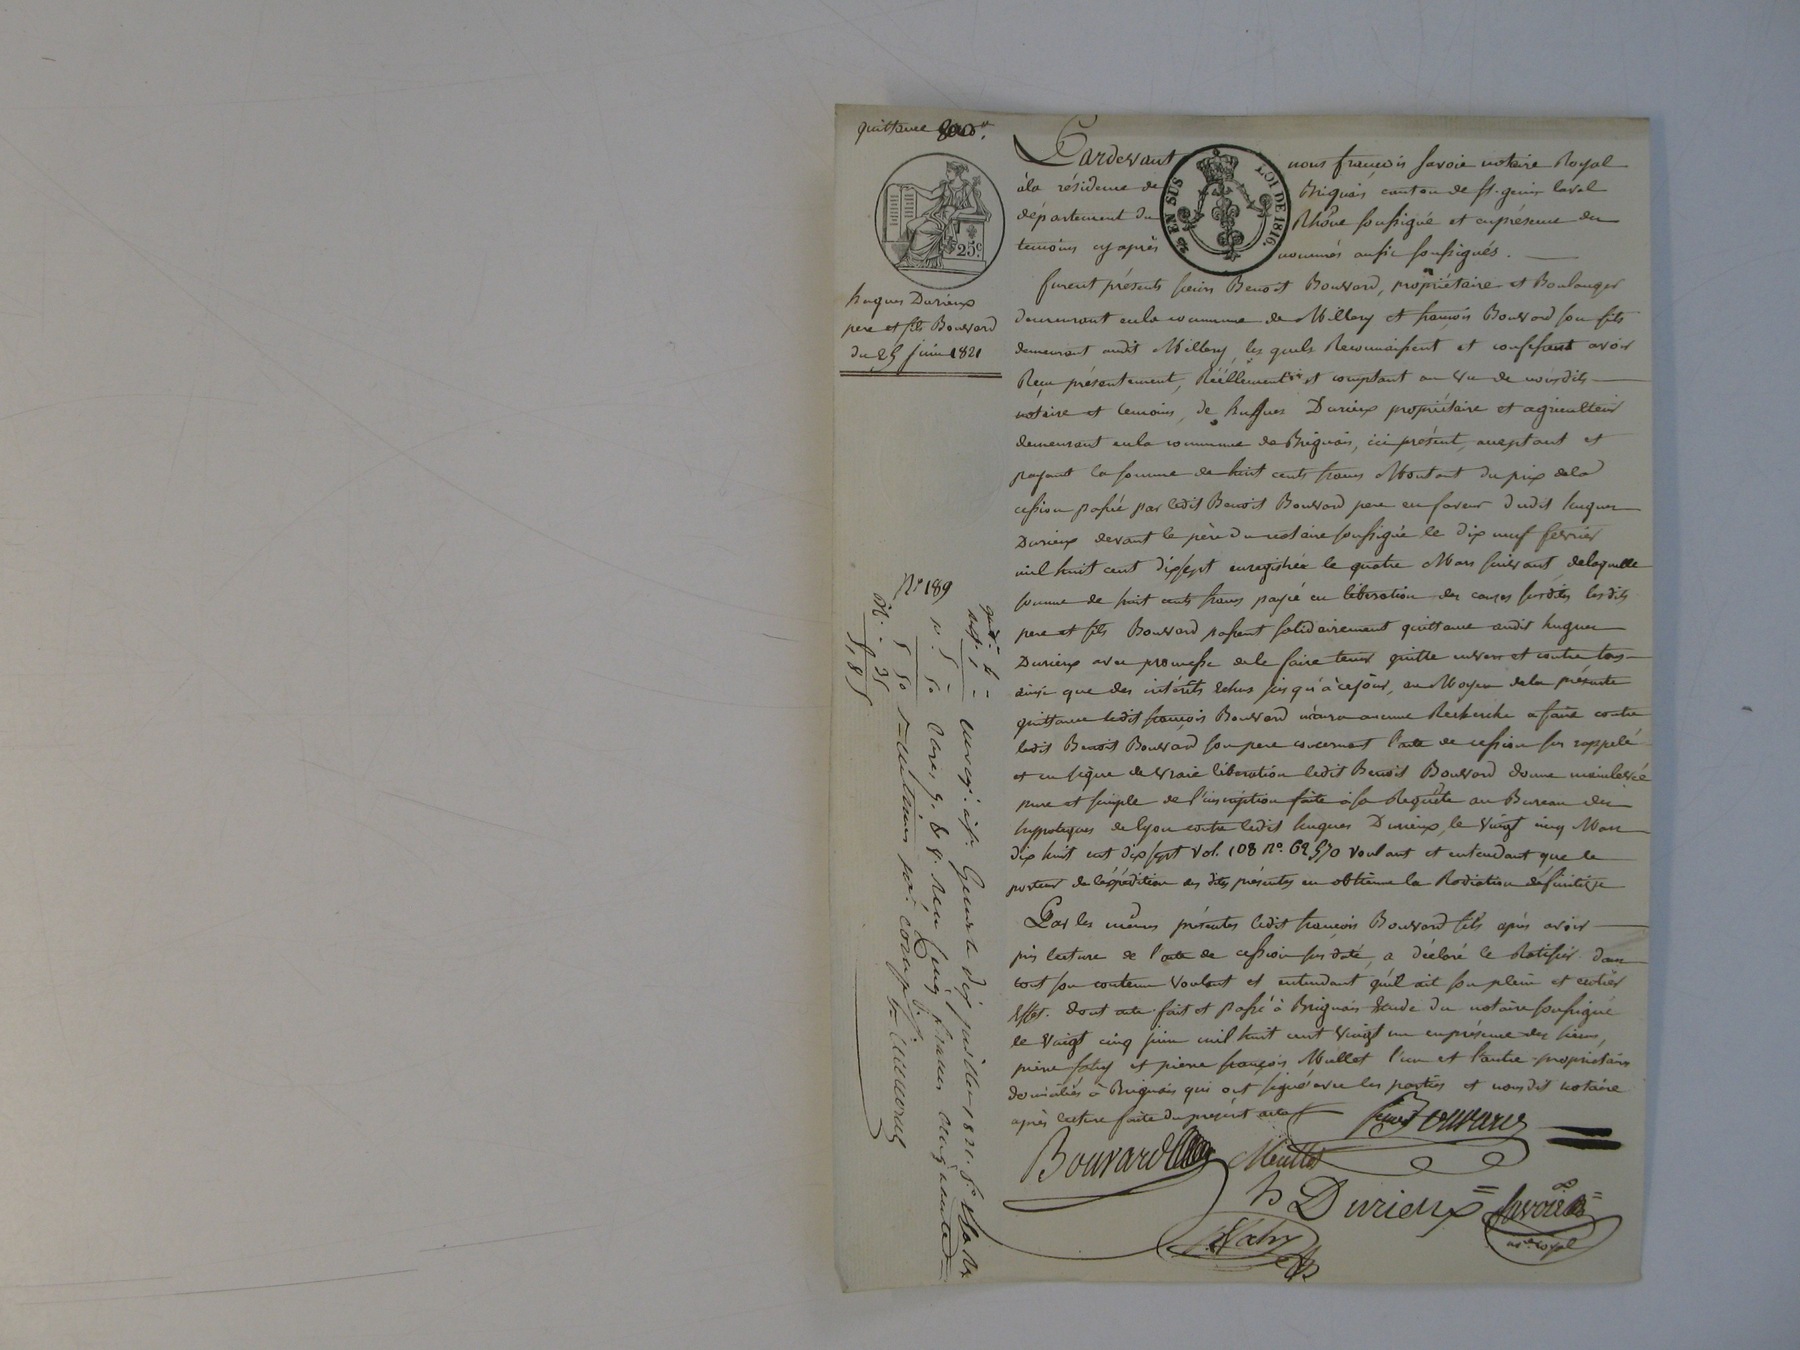 quittance 800 fr.
25c.
hugues Durieux
pere et fils Bouvard
du 25 juin 1821
EN SUS
LOI DE 1816.
Pardevant nous françois Savoie notaire Royal
à la résidence de Briguais canton de St. genis laval
département du Rhône soussigné et en présence des
temoins cy après nommés aussi soussignés.
furent présents sieurs Benoit Bouvard, propriétaire et Boulanger
demeurant en la commune de Millery et françois Bouvard son fils
demeurant audit Millery, les quels Reconnaissent et confessent avoir
Reçu présentement, Réellement et comptant au vu de nousdits
notaire et temoins, de hugues Durieux propriétaire et agriculteur
demeurant en la commune de Briguais, ici présent, acceptant et
payant la somme de huit cents francs Montant du prix de la
cession passée par ledit Benoit Bouvard pere en faveur dudit hugues
Durieux devant le père du notaire soussigné le dix neuf février
mil huit cent dix sept enregistrée le quatre Mars suivant de laquelle
somme de huit cents francs payée en libération des causes susdites lesdits
pere et fils Bouvard passent solidairement quittance audit hugues
Durieux avec promesse de le faire tenir quitte envers et contre tous
ainsi que des intérêts échus jusqu'à ce jour, au Moyen de la présente
quittance ledit françois Bouvard n'aura aucune Recherche a faire contre
ledit Benoit Bouvard son pere concernant l'acte de cession sus rappelé
et en signe de vraie libération ledit Benoit Bouvard donne mainlevée
pure et simple de l'inscription faite à sa Requête au Bureau des
hyppoteques de lyon contre ledit hugues Durieux, le vingt cinq Mars
dix huit cent dix sept vol. 108 No. 62570 voulant et entendant que le
porteur de l'expédition des dites présentes en obtienne la Radiation définitive
Par les mêmes présentes ledit françois Bouvard fils après avoir
pris lecture de l'acte de cession sus daté, a déclaré le Ratifier dans
tout son contenu voulant et entendant qu'il ait son plein et entier
Effet. dont acte fait et passé à Briguais Etude du notaire soussigné
le vingt cinq juin mil huit cent vingt un en présence des sieurs
pierre fahy et pierre françois Mullet l'un et l'autre propriétaires
domiciliés à Briguais qui ont signé avec les parties et nousdit notaire
après lecture faite du présent acte
Bouvard
Bouvard
Mullet
h Durieux
Savoie
nre royal
P. Fahy
No 189
quitt. 4
5 50
5 50
" 35
5,85
Enregt. à St Genis le dix juillet 1821. fo
reçu cinq francs cinquante
centimes